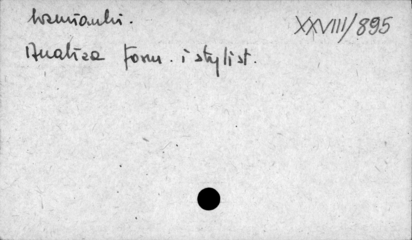 Wzmianki.
XXVIII/895
Analiza form. i stylist.